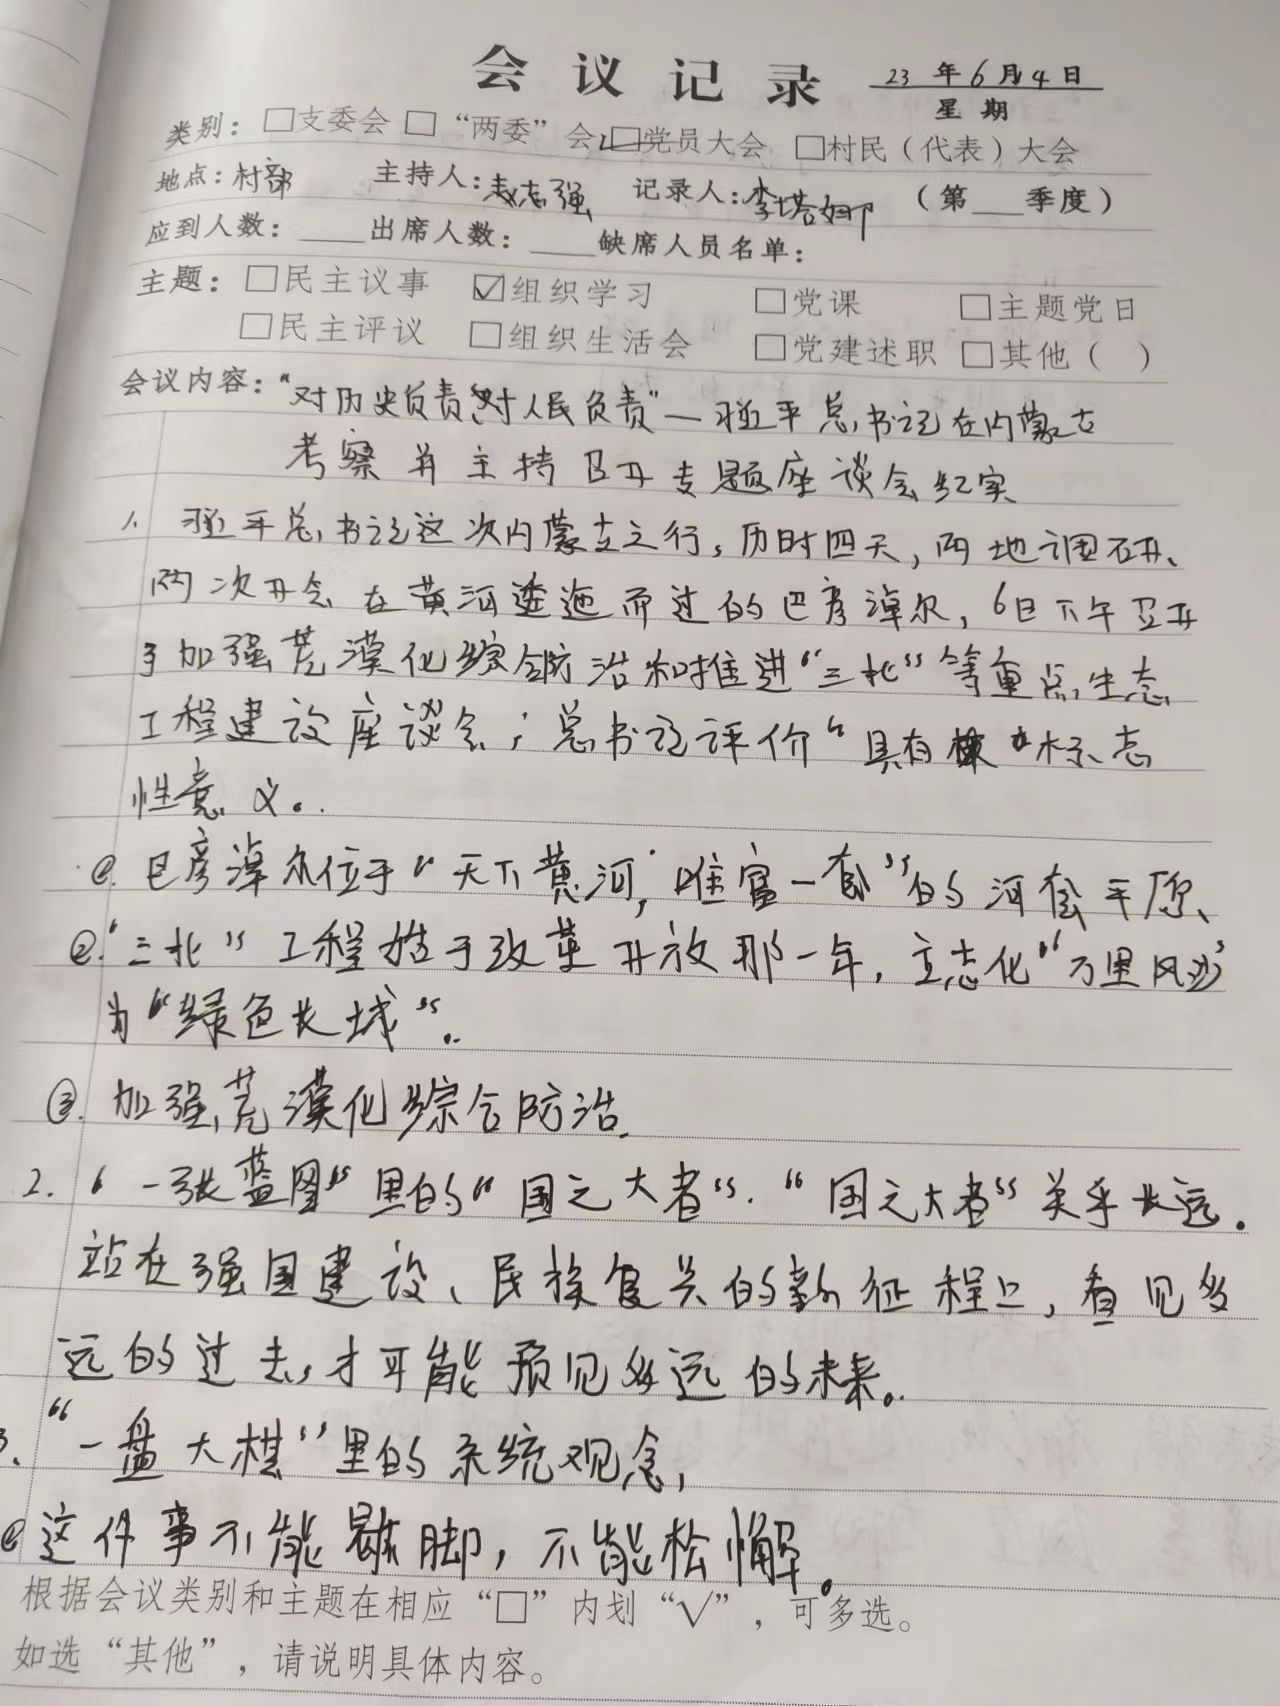 会议记录 23年6月4日
星期
类别：□支委会 □“两委”会 □党员大会 □村民（代表）大会
地点：村部 主持人：赵志强 记录人：李塔娜 （第___季度）
应到人数：____出席人数：____缺席人员名单：
主题：□民主议事 ☑组织学习 □党课 □主题党日
□民主评议 □组织生活会 □党建述职 □其他（ ）
会议内容：“对历史负责 对人民负责”—习近平总书记在内蒙古
考察并主持召开专题座谈会纪实
1. 习近平总书记这次内蒙古之行，历时四天，两地调研、
两次开会 在黄河逶迤而过的巴彦淖尔，6日下午召开
了加强荒漠化综合防治和推进“三北”等重点生态
工程建设座谈会；总书记评价“具有标志
性意义。
①. 巴彦淖尔位于“天下黄河，唯富一套”的河套平原、
②.“三北”工程始于改革开放那一年，立志化“万里风沙”
为“绿色长城”。
③. 加强荒漠化综合防治.
2. “一张蓝图”里的“国之大者”.“国之大者”关乎长远.
站在强国建设、民族复兴的新征程上，看见多
远的过去，才可能预见多远的未来。
3. “一盘大棋”里的系统观念，
①这件事不能歇脚，不能松懈。
根据会议类别和主题在相应“□”内划“√”，可多选。
如选“其他”，请说明具体内容。